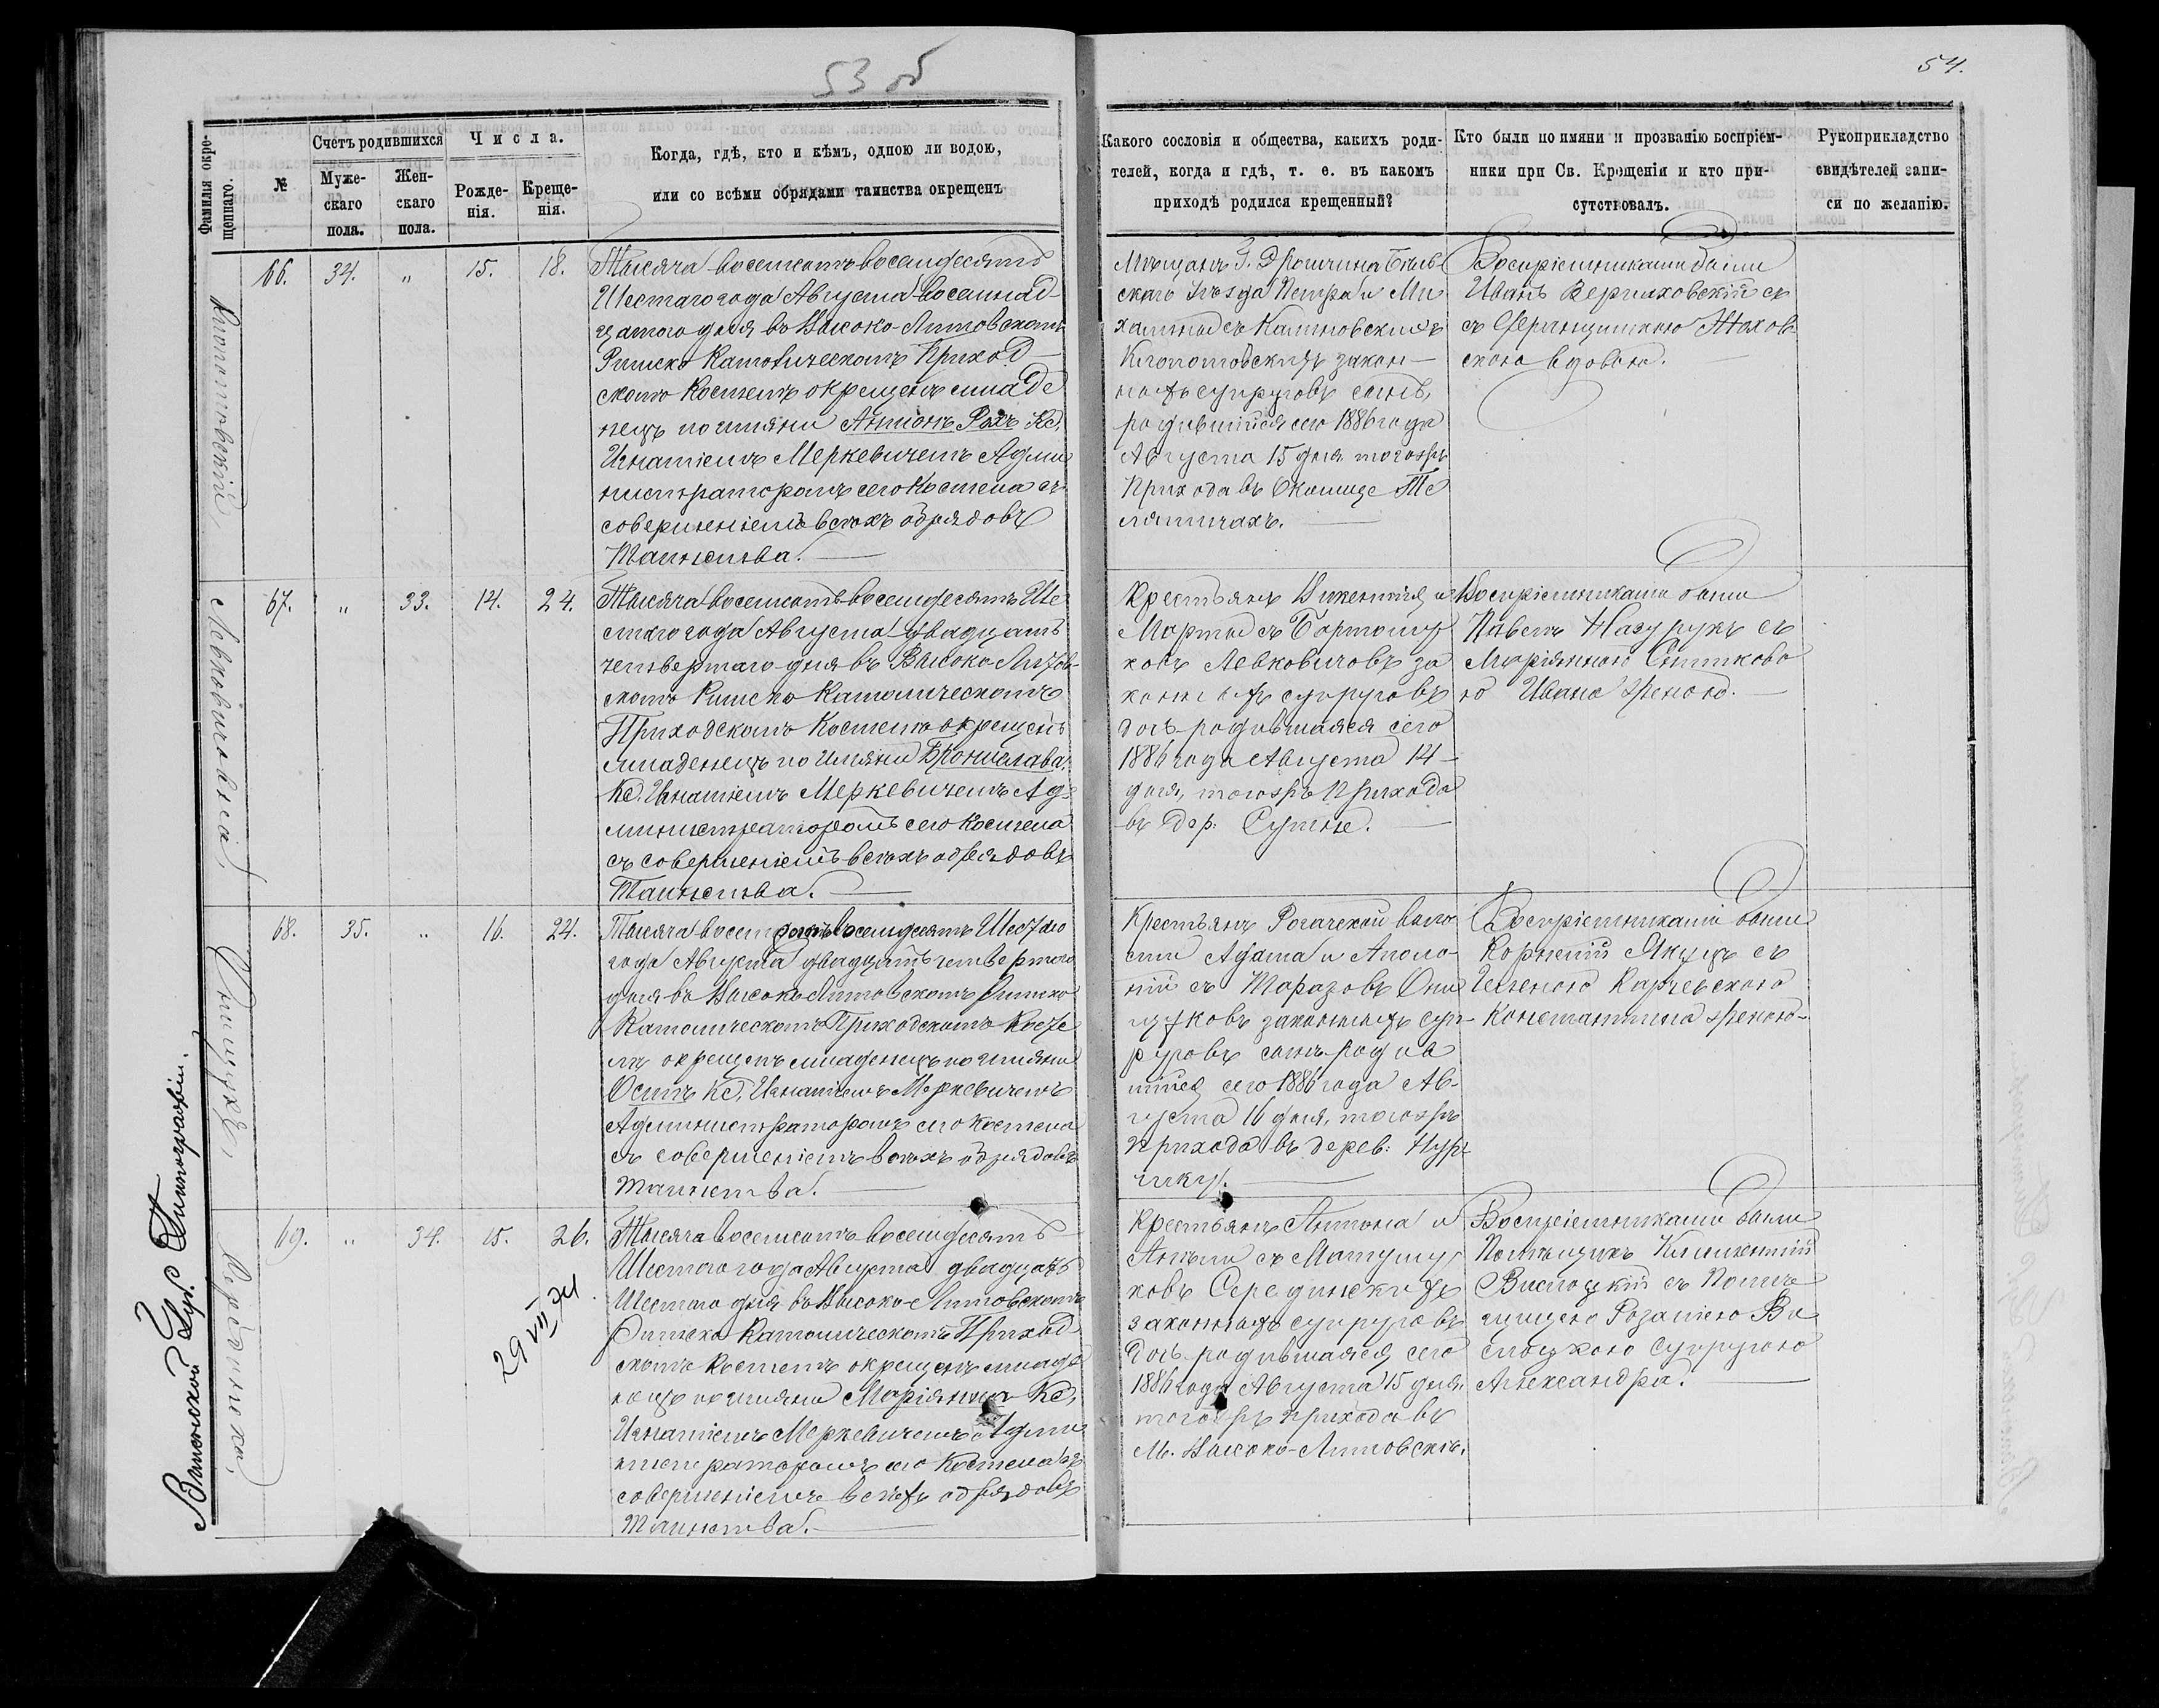 53 об
54.
Фамилія окрещеннаго.
№
Счетъ родившихся
Мужескаго пола.
Женскаго пола.
Числа.
Рожденія.
Крещенія.
Когда, гдѣ, кто и кѣмъ, одною ли водою,
или со всѣми обрядами таинства окрещенъ
Какого сословія и общества, какихъ роди-
телей, когда и гдѣ, т. е. въ какомъ
приходѣ родился крещенный?
Кто были по имяни и прозванію воспріем-
ники при Св. Крещенія и кто при-
сутствовалъ.
Рукоприкладство
свидѣтелей запи-
си по желанію.
Клопотовскій
66. 34. „ 15. 18.
Тысяча восемсотъ восемдесятъ
Шестаго года Августа восемнад-
цатого дня въ Высоко-Литовскомъ
Римско Католическомъ Приход-
скомъ Костелѣ окрещенъ младе
нецъ по имяни Антонъ Рохъ Кс.
Игнатіемъ Меркевичемъ Адми
нистраторомъ сего Костела съ
совершеніемъ всѣхъ обрядовъ
Таинства.
Мѣщанъ З. Дрогичина Бѣль-
скаго Уѣзда Петра и Ми
халины съ Калиновскихъ
Клопотовскихъ закон-
ныхъ супруговъ сынъ,
родившійся сего 1886 года
Августа 15 дня тогожъ
Прихода въ Околице Те
лятичахъ.
Воспріемниками были
Иванъ Вержховскій съ
съ Францишкою Жохов-
скою вдовою.
Левковичовна
67. „ 33. 14. 24.
Тысяча восемсотъ восемдесятъ Ше
стаго года Августа двадцать
четвертаго дня въ Высоко-Литов-
скомъ Римско Католическомъ
Приходскомъ Костелѣ окрещенъ
младенецъ по имяни Брониславa.
Кс. Игнатіемъ Меркевичемъ Ад-
министраторомъ сего Костела
съ совершеніемъ всѣхъ обрядовъ
Таинства.
Крестьянъ Викентія и
Марты съ Бартошу
ковъ Левковичовъ за
конныхъ супруговъ
дочь родившаяся сего
1886 года Августа 14
дня, тогожъ Прихода
въ дер:
Воспріемниками были
Павелъ Мазурукъ съ
Маріянною Сытково
ю Ивана женою.
Онищукъ
68. 35. „ 16. 24.
Тысяча восемсотъ восемдесятъ Шестаго
года Августа двадцать четвертаго
дня въ Высоко-Литовскомъ Римско
Католическомъ Приходскомъ Косте
лѣ окрещенъ младенецъ по имяни
Осипъ Кс. Игнатіемъ Меркевичемъ
Администраторомъ сего Костела
съ совершеніемъ всѣхъ обрядовъ
таинства.
Крестьянъ Рогачской воло
сти Адама и Аполо-
ніи съ Таразовъ Они
щуковъ законныхъ суп-
руговъ сынъ родив
шійся сего 1886 года Ав-
густа 16 дня, тогожъ
Прихода въ дерев:
Воспріемниками были
Корнелій Якуцъ съ
Еленою Карчевскою
Константина женою.
Серединска
69. „ 34. 15. 26.
29 VII 74
Тысяча восемсотъ восемдесятъ
Шестого года Августа двадцать
Шестого дня въ Высоко-Литовскомъ
Римско Католическомъ Приход
скомъ Костелѣ окрещенъ младе
нецъ по имяни Маріянна Кс.
Игнатіемъ Меркевичемъ Адми
нистраторомъ сего Костела съ
совершеніемъ всѣхъ обрядовъ
Таинства.
Крестьянъ Антона и
Анели съ Матушу
ковъ Серединскихъ
законныхъ супруговъ
дочь родившаяся сего
1886 года Августа 15 дня.
тогожъ прихода въ
М. Высоко-Литовскѣ.
Воспріемниками были
Помѣщикъ Климентій
Висоцкій съ Помѣ
щицею Розаліею Ви
соцкою Супругою
Александра.
Виленской Губ. Типографіи.